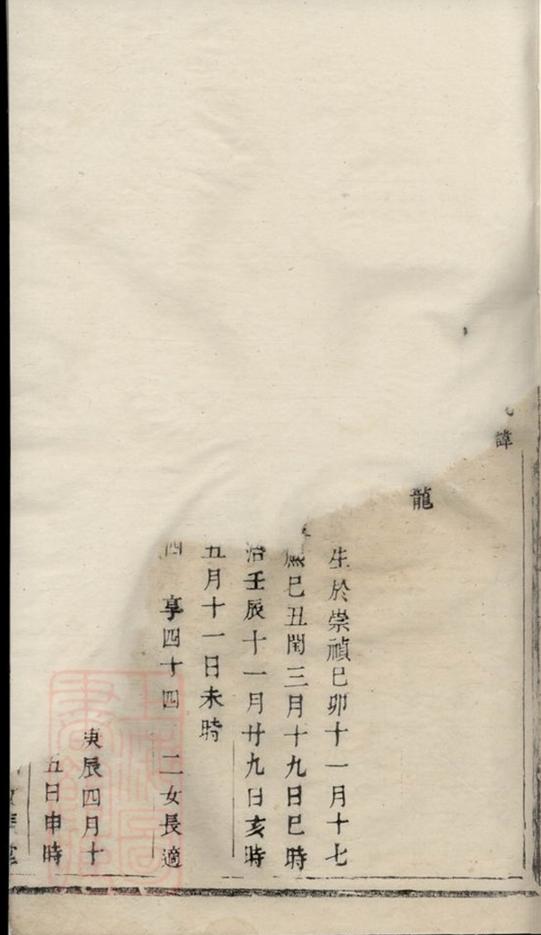 諱
龍
生於崇禎己卯十一月十七
熙己丑閏三月十九日巳時
治壬辰十一月廿九日亥時
五月十一日未時
四 享四十四 二女長適
庚辰四月十
五日申時